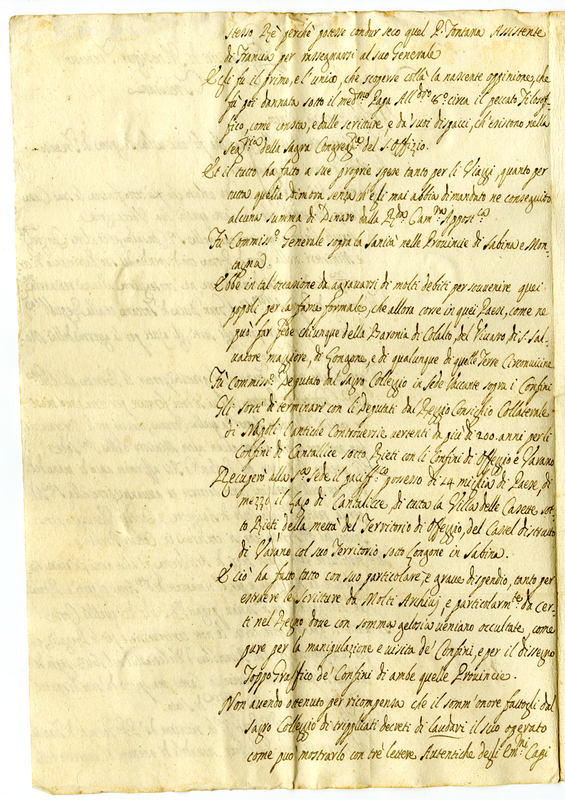 stesso Rè perchè potesse condur seco quel P. Fontana Assistente
di Francia per rassegnarsi al suo Generale
Egli fù il primo, e l'unico, che scoperse collà la nascente oppinione, che
fù poi dannata sotto il med.mo Papa Aless.dro 8.o circa il peccato Filosof-
fico, come consta, e dalle scritture e da' suoi dispacci, ch'esistono nella
Seg.ria della Sagra Congreg.ne del S. Offizio.
Et il tutto ha fatto a sue proprie spese tanto per li Viaggi, quanto per
tutta quella Dimora senza ch'egli mai abbia dimandato ne conseguito
alcuna summa di Dinaro dalla R.da Cam.ra Appost.ca
Fù Commiss.o Generale sopra la Sanità nelle Provincie di Sabina e Mon-
tagna.
Ebbe in tal'occasione da aggravarsi di molti debiti per souvenire quei
popoli per la fame formale, che allora corse in quei Paesi, come ne
può far fede chiunque della Baronia di Colalto, del Vicario di S. Sal-
vatore maggiore, di Longone, e di qualunque di quelle Terre Circonvicine
Fù Commiss.o Deputato dal Sagro Colleggio in Sede Vacante sopra i Confini
Gli sortì di terminare con li Deputati dal Reggio Consiglio Collaterale
di Napoli l'antiche Controversie vertenti da più di 200. anni per li
Confini di Cantalice sotto Rieti con li Confini di Offeggio e Varano
Recuperò alla S. Sede il pacifico possesso di 14 miglia di Paese, di
mezzo il Lago di Cantalice, di tutta la Villa delle Casette sot-
to Rieti della metà del Territorio di Offeggio, del Castel distrutto
di Varano col suo Territorio sotto Longone in Sabina.
E ciò ha fatto tutto con suo particolare, e grave dispendio, tanto per
estraere le Scritture da Molti Archivj e particolarm.te da cer-
ti nel Regno dove con somma gelosia veniano occultate, come
pure per la manipulazione e visita de' Confini, e per il dissegno
Toppograffico de' Confini di ambe quelle Provincie.
Non avendo ottenuto per ricompensa che il somm'onore fattogli dal
Sagro Colleggio di tripplicati decreti di laudari il suo operato
come può mostrarlo con tre lettere Autentiche degli Em.mi Capi